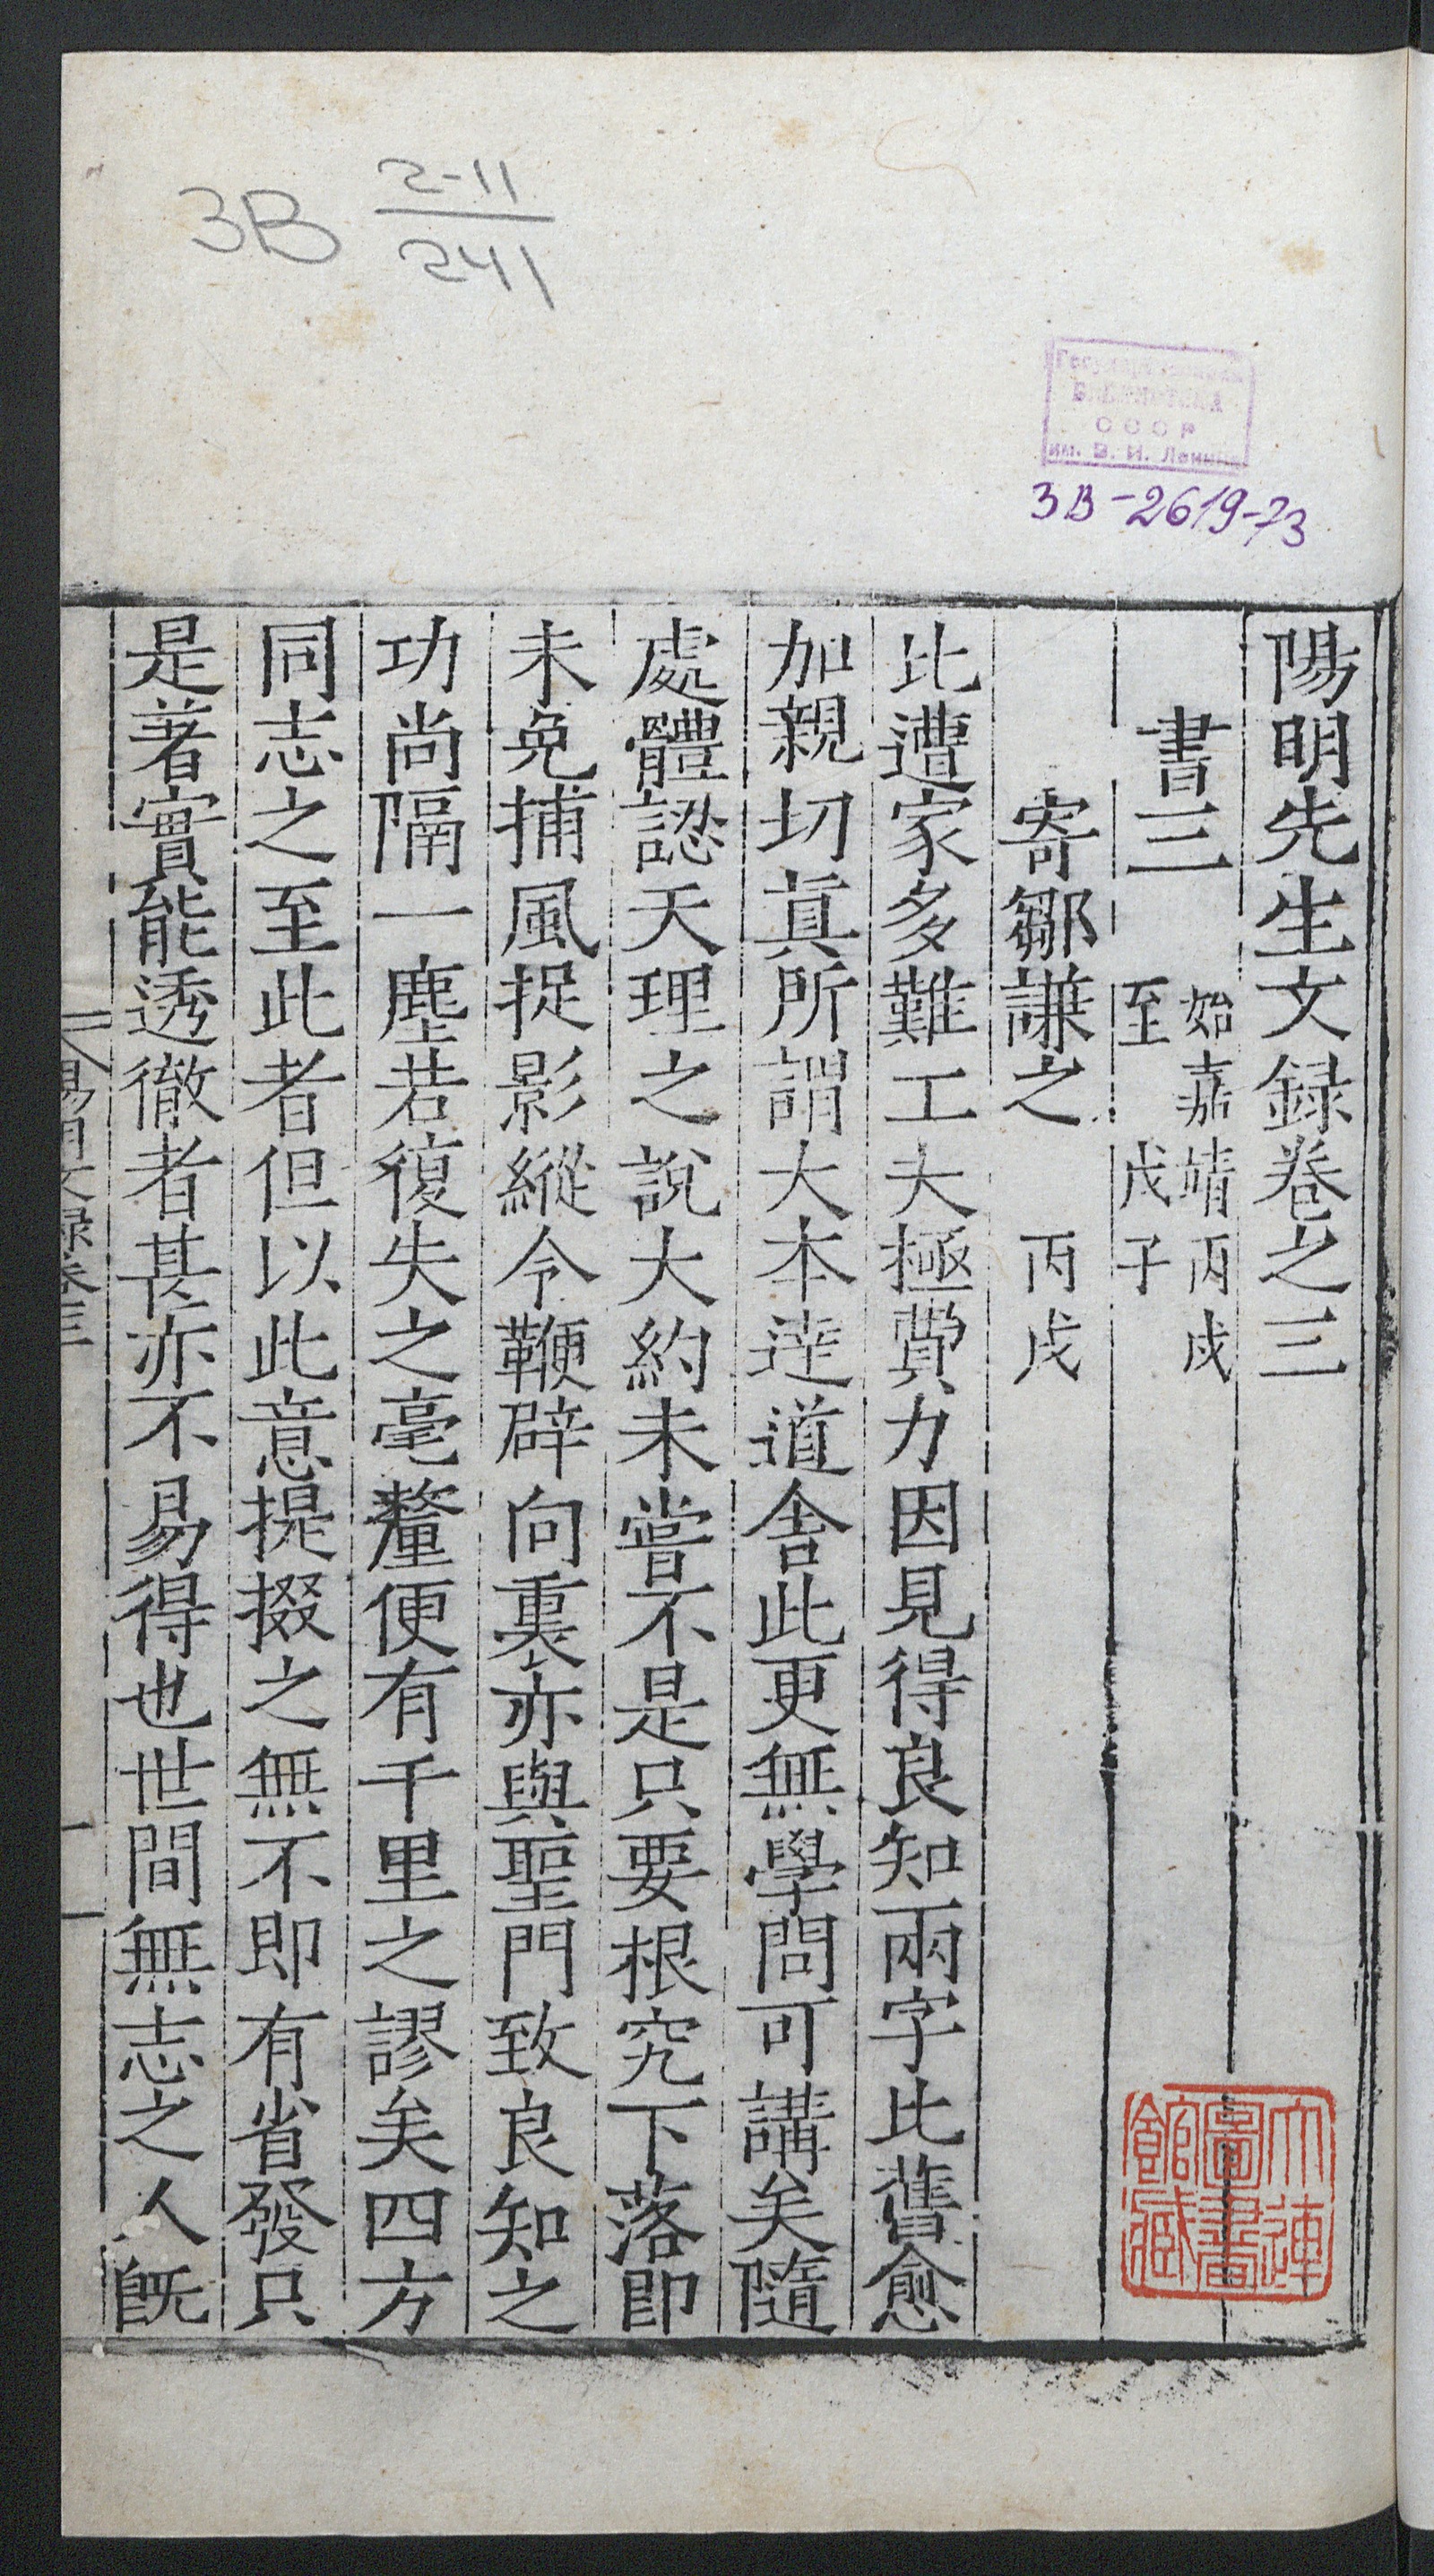 3B 2-11
241
БИБЛИОТЕКА
СССР
им. В. И. Ленина
3В-2619-73
陽明先生文録卷之三
書三 始嘉靖丙戌
至戊子
寄鄒謙之 丙戌
比遭家多難工夫極費力因見得良知兩字比舊愈
加親切真所謂大本逹道舍此更無學問可講矣隨
處體認天理之說大約未嘗不是只要根究下落即
未免捕風捉影縱令鞭辟向裏亦與聖門致良知之
功尚隔一塵若復失之毫釐便有千里之謬矣四方
同志之至此者但以此意提掇之無不即有省發只
是著實能透徹者甚亦不易得也世間無志之人既
大連
圖書
館藏